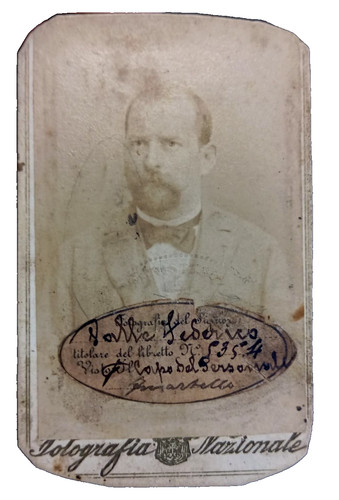 Fotografia del Signor
Valle Federico
titolare del libretto N.º 5354
Visto Il Capo del Personale
Fotografia Nazionale